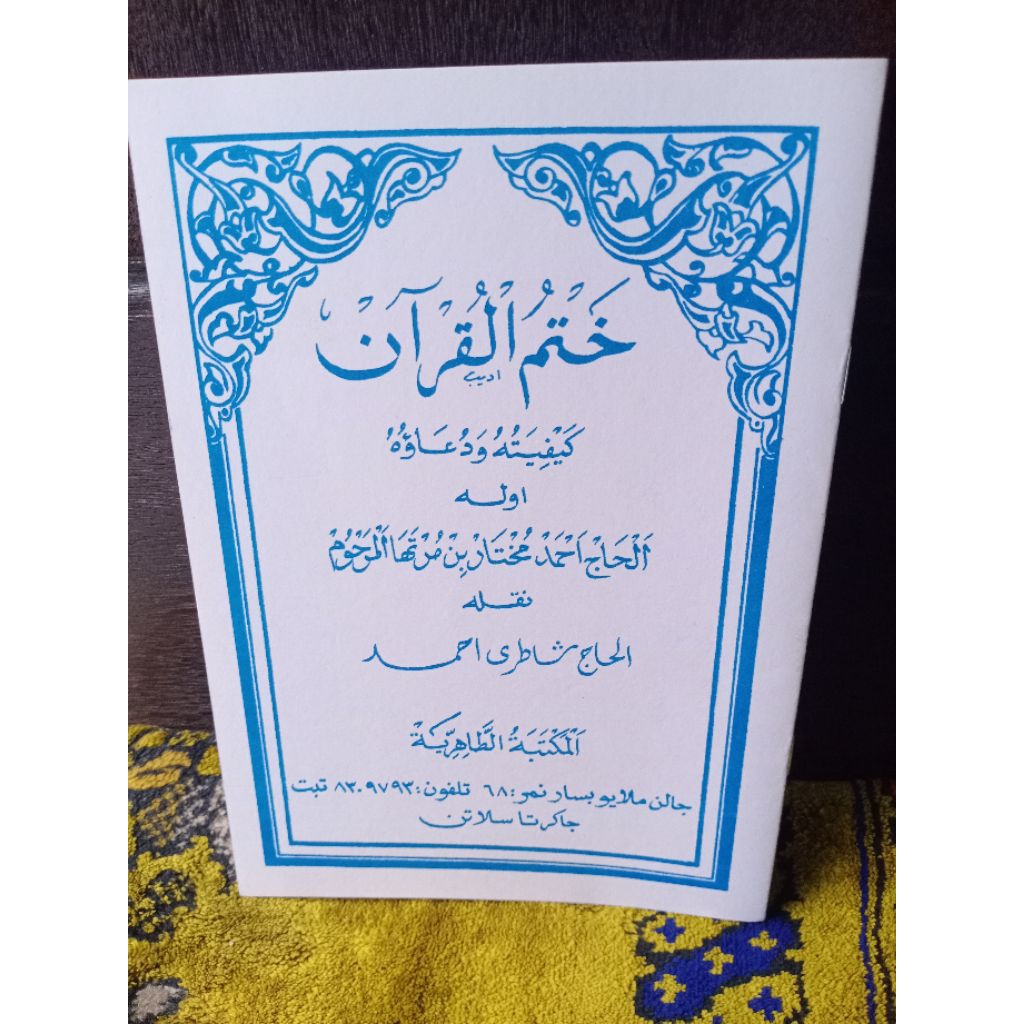 خَتْمُ الْقُرْآنْ
اديب
كَيْفِيَتُهُ وَدُعَاؤُهُ
اوله
اَلْحَاجْ اَحْمَدْ مُخْتَارْ بِنْ مُرْتَهَا اَلْمَرْحُوْمْ
نقله
الحاج شاطرى احمد
اَلْمَكْتَبَةُ الطَّاهِرِيَّةْ
جالن ملايو بسار نمر: ٦٨ تلفون: ٨٣٠٩٧٩٣ تبت
جاكرتا سلاتن